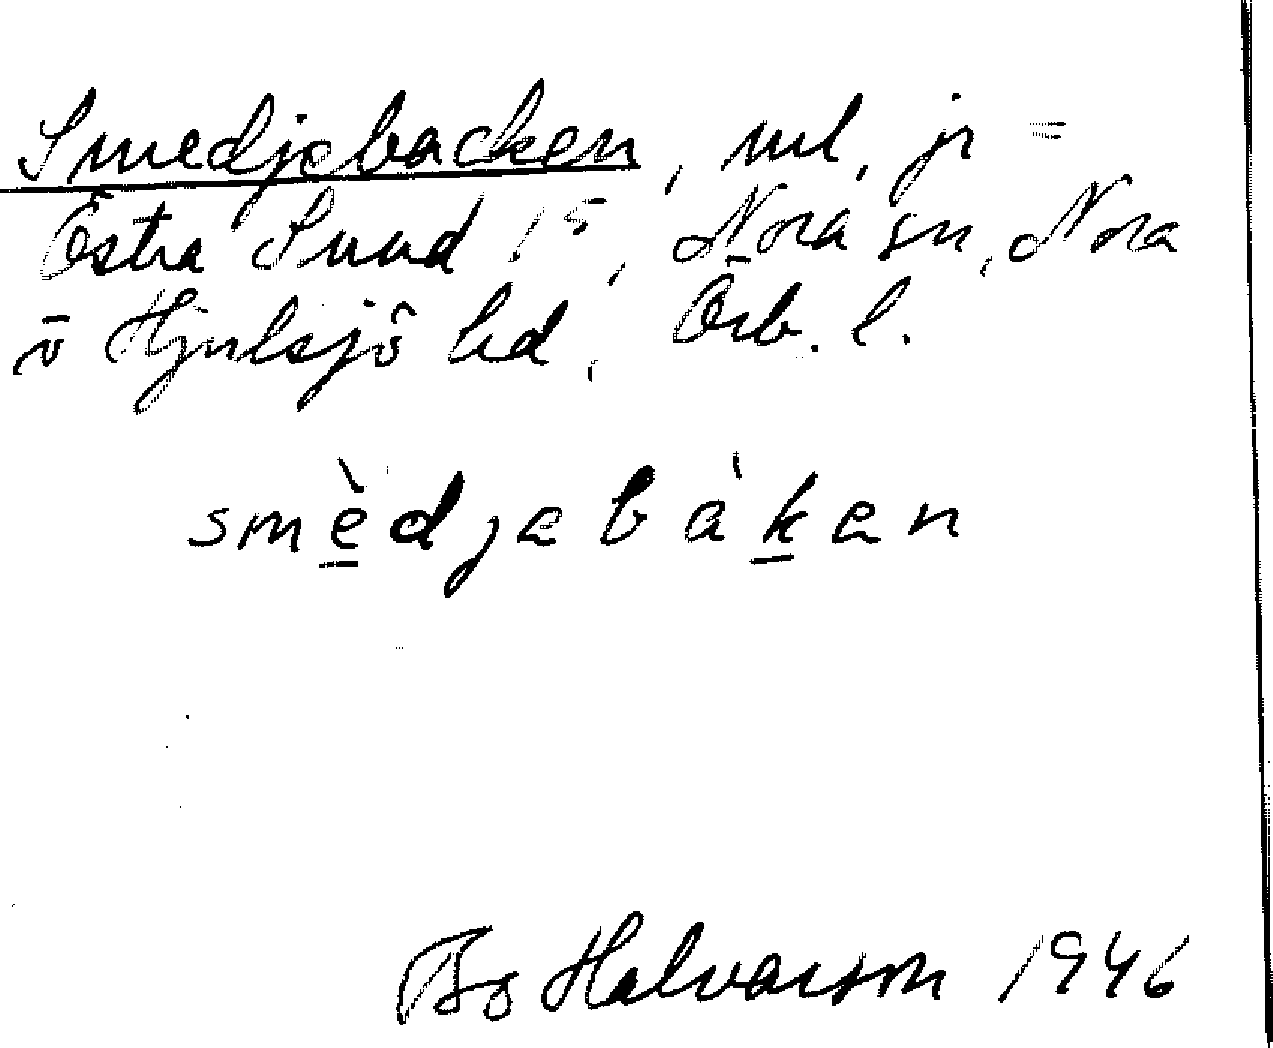 Smedjebacken, ml. jr =
Östra Sund 1⁵, Nora sn, Nora
o Hjulsjö hd, Örb. l.
smèdjebàken
Bo Halvarson 1946